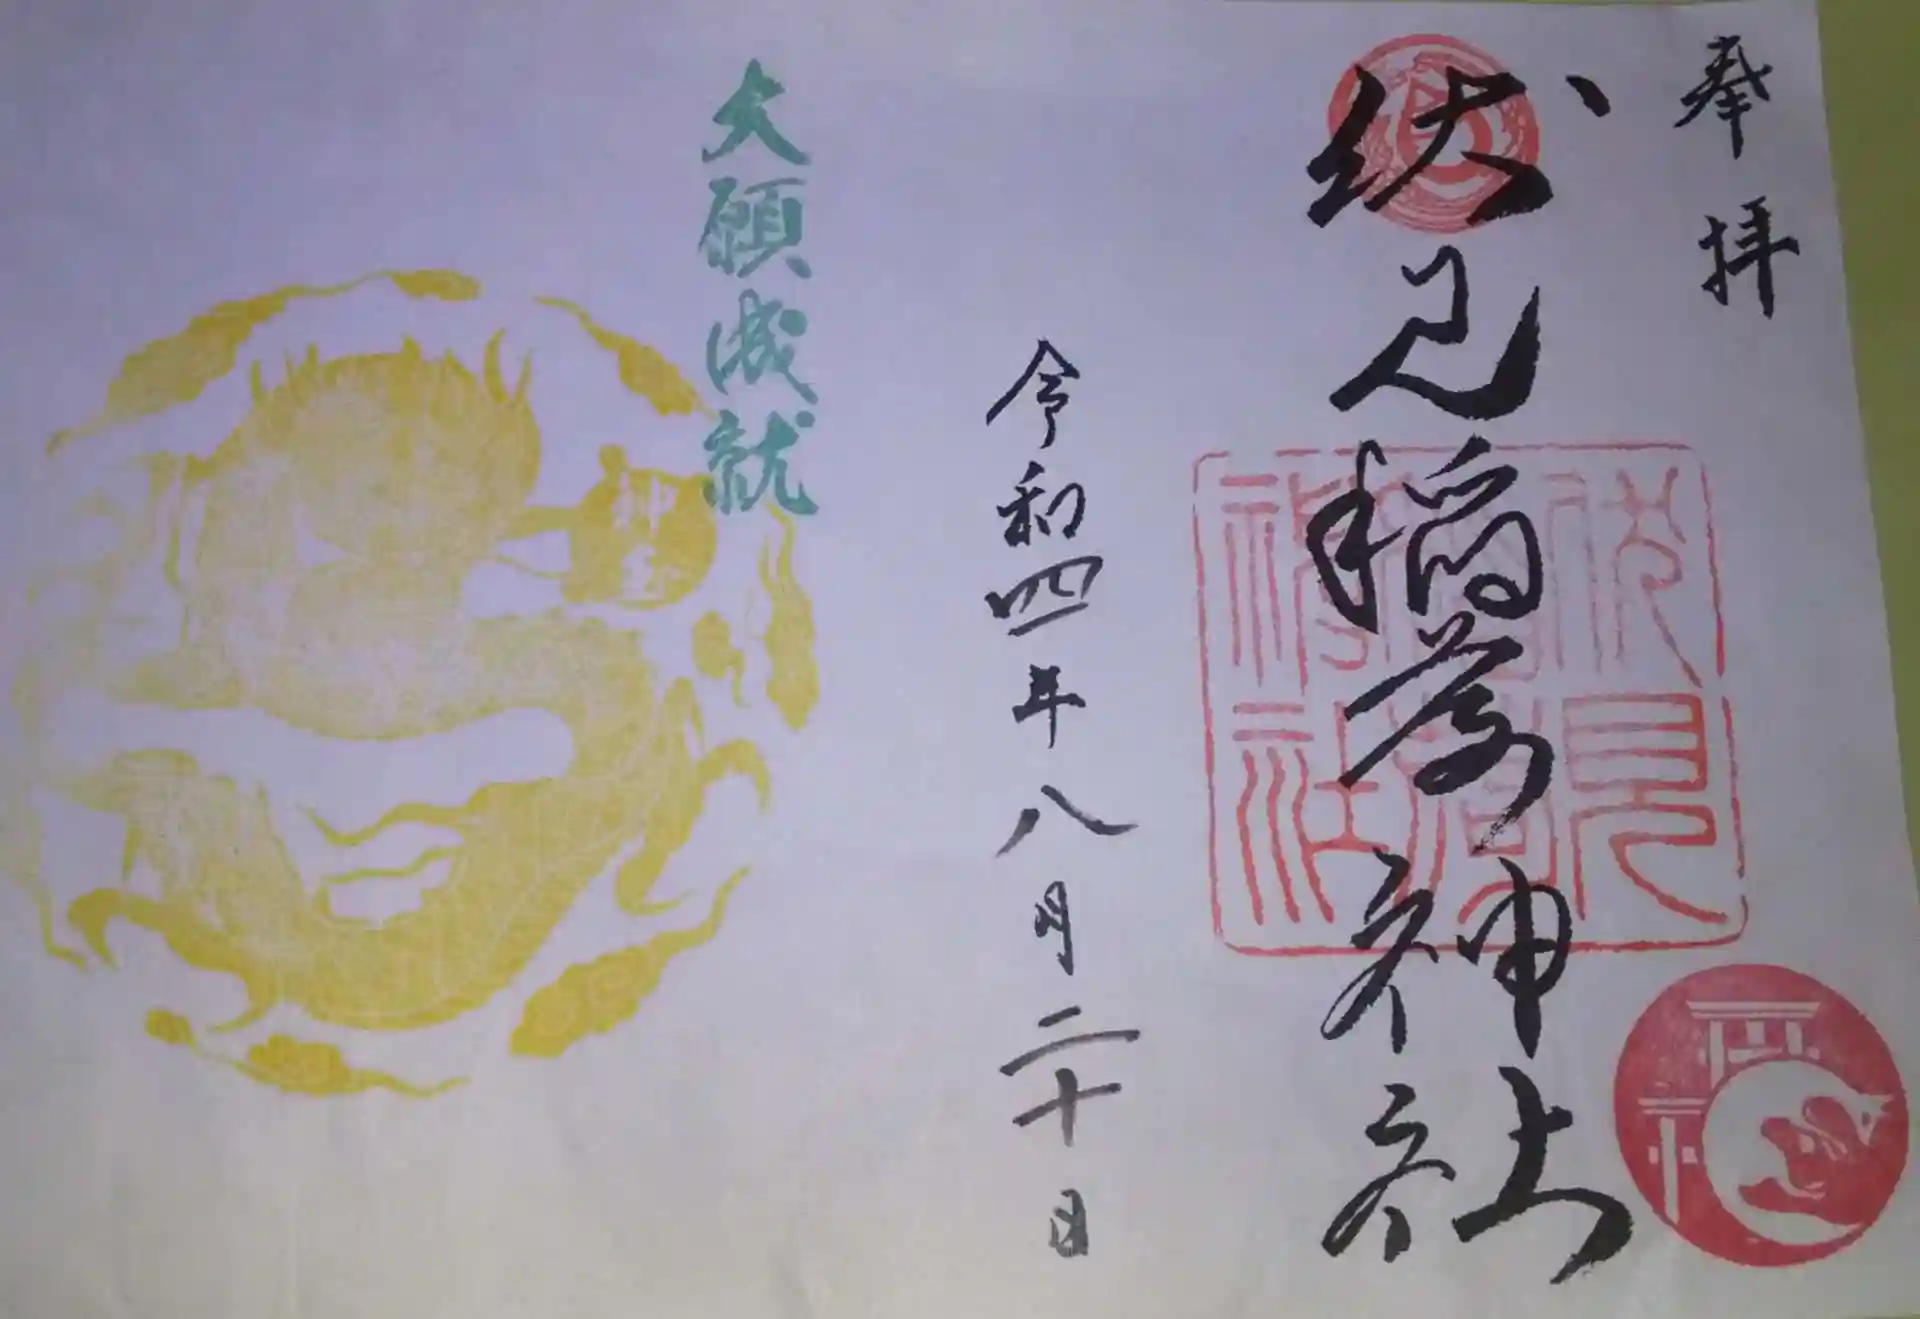 奉拝
伏見稲荷神社
伏見
稲荷
神社
令和四年八月二十日
大願成就
神玉